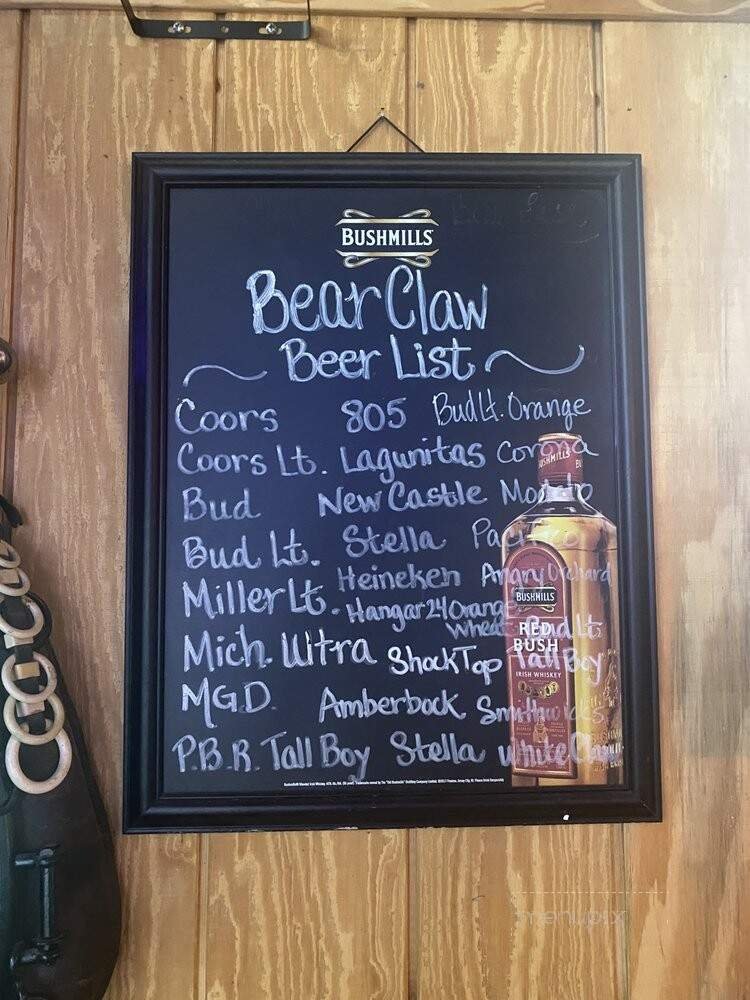 BUSHMILLS
Bear Claw
Beer List
Coors 805 Bud Lt. Orange
Coors Lt. Lagunitas Corona
Bud New Castle Modelo
Bud Lt. Stella Pacifico
Miller Lt. Heineken Angry Orchard
Hangar 24 Orange Wheat
Mich. Ultra Shock Top Bud Lt. Tall Boy
M.G.D. Amberbock Smithwicks
P.B.R. Tall Boy Stella White Claw
BUSHMILLS
BUSHMILLS
RED
BUSH
IRISH WHISKEY
menupix